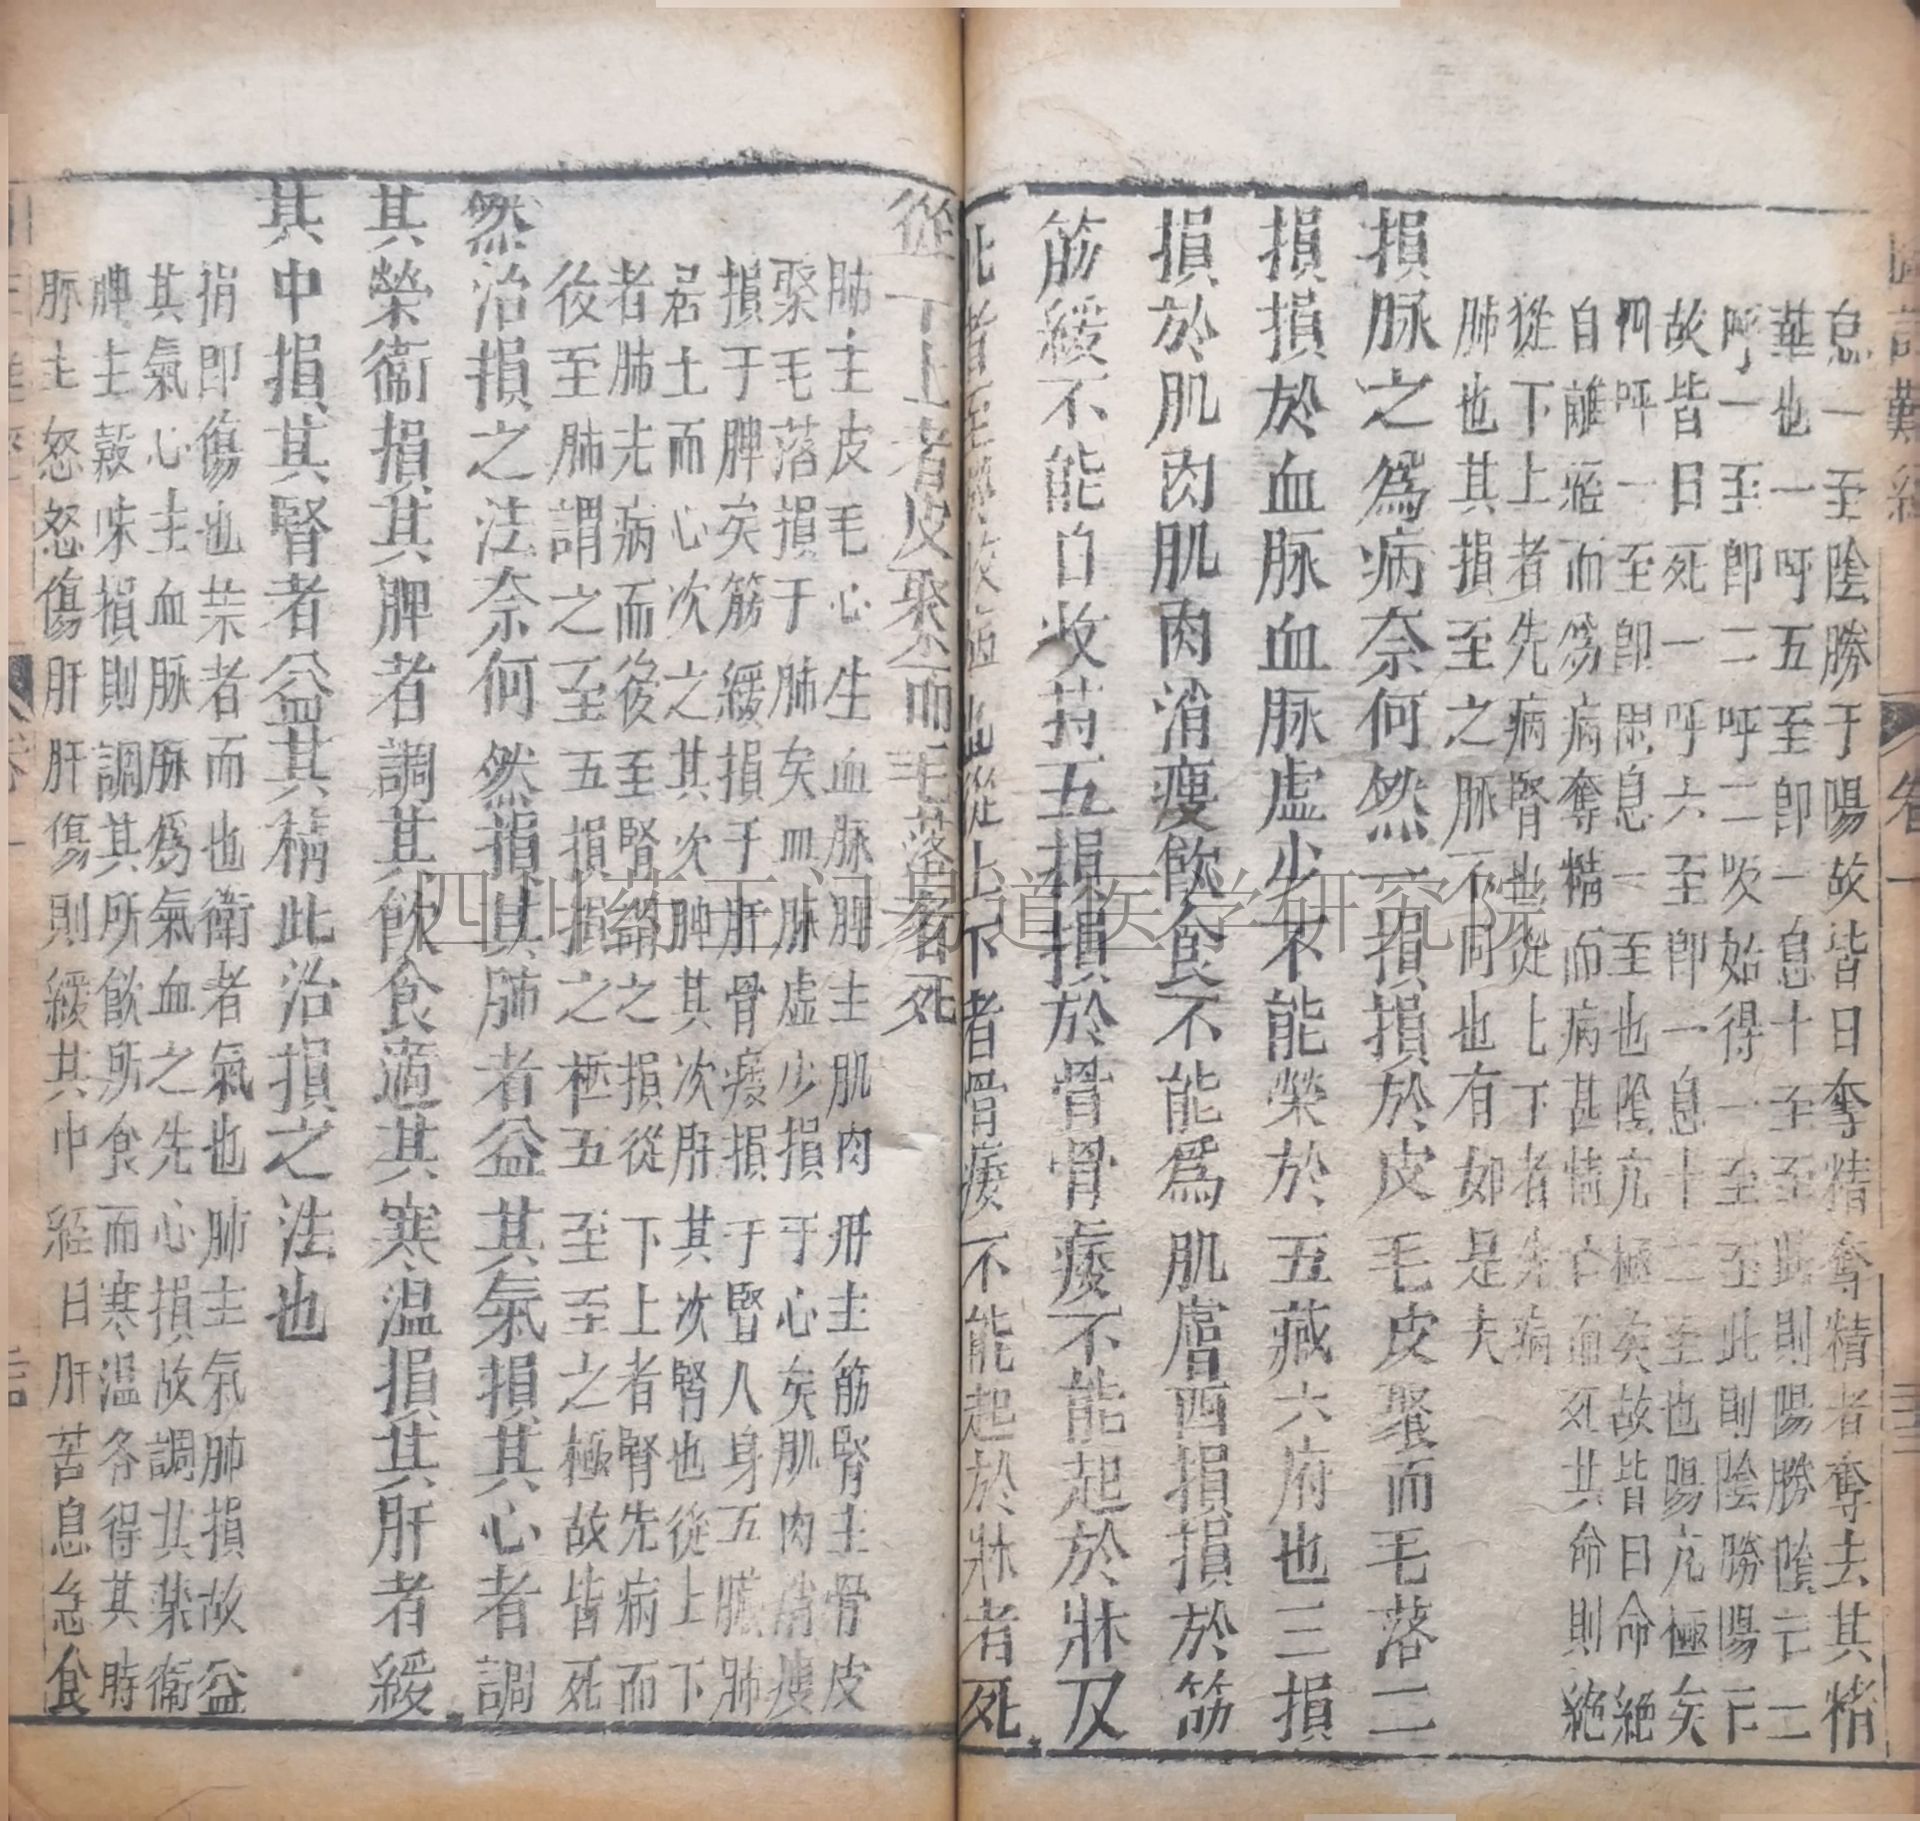 圖註難經 卷一 三十三
息一至陰勝于陽故皆曰奪精奪精者奪去其精
華也一呼五至即一息十至至此則陽勝陰亡二
呼一至即二呼二吸始得一至至此則陰勝陽亡
故皆曰死一呼六至即一息十二至也陽亢極矣
四呼一至即四息一至也陰亢極矣故皆曰命絕
自離經而為病奪精而病甚情亡而死其命則絕
從下上者先病腎也從上下者先病
肺也其損至之脉不同也有如是夫
損脉之為病奈何然一損損於皮毛皮聚而毛落二
損損於血脉血脉虛少不能榮於五藏六府也三損
損於肌肉肌肉消瘦飲食不能為肌膚四損損於筋
筋緩不能自收持五損損於骨骨痿不能起於牀及
此者至於收病也從上下者骨痿不能起於牀者死
從下上者皮聚而毛落者死
肺主皮毛心生血脉脾主肌肉肝主筋腎主骨皮
聚毛落損于肺矣血脉虛少損于心矣肌肉消瘦
損于脾矣筋緩損于肝骨痿損于腎人身五臟肺
居上而心次之其次脾其次肝其次腎也從上下
者肺先病而後至腎謂之損從下上者腎先病而
後至肺謂之至五損損之極五至至之極故皆死
然治損之法奈何然損其肺者益其氣損其心者調
其榮衞損其脾者調其飲食適其寒溫損其肝者緩
其中損其腎者益其精此治損之法也
損即傷也榮者而也衛者氣也肺主氣肺損故益
其氣心主血脉脉為氣血之先心損故調其榮衞
脾主穀味損則調其所飲所食而寒溫各得其時
肝主怒怒傷肝肝傷則緩其中經曰肝苦急急食